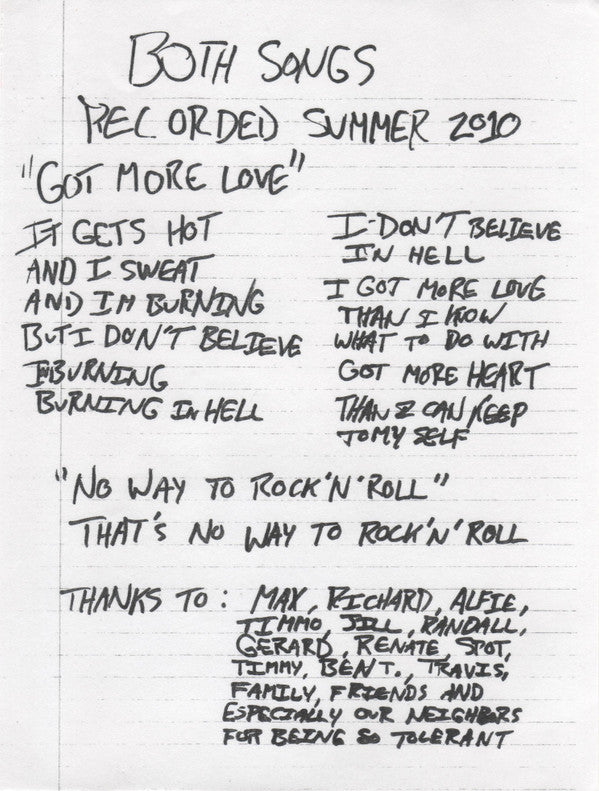 BOTH SONGS
RECORDED SUMMER 2010
"GOT MORE LOVE"
IT GETS HOT
AND I SWEAT
AND IM BURNING
BUT I DON'T BELIEVE
IN BURNING
BURNING IN HELL
I DON'T BELIEVE
IN HELL
I GOT MORE LOVE
THAN I KNOW
WHAT TO DO WITH
GOT MORE HEART
THAN I CAN KEEP
TO MY SELF
"NO WAY TO ROCK'N'ROLL"
THAT'S NO WAY TO ROCK'N'ROLL
THANKS TO: MAX, RICHARD, ALFIE,
TIMMO, JILL, RANDALL,
GERARD, RENATE, SPOT,
TIMMY, BEN T., TRAVIS,
FAMILY, FRIENDS AND
ESPECIALLY OUR NEIGHBORS
FOR BEING SO TOLERANT